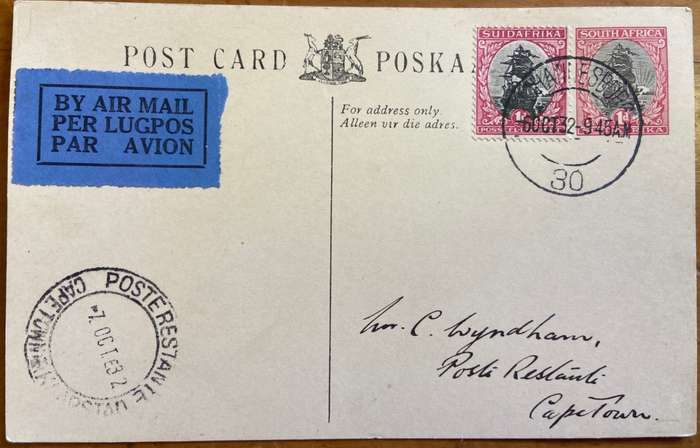 POST CARD POSKA
SUIDAFRIKA
SOUTH AFRICA
BY AIR MAIL
PER LUGPOS
PAR AVION
For address only.
Alleen vir die adres.
1D
1D
6 OCT 32 - 9 45 AM
30
POSTE RESTANTE
CAPE TOWN
7 OCT 32
Mr. C. Wyndham,
Poste Restante
Cape Town.